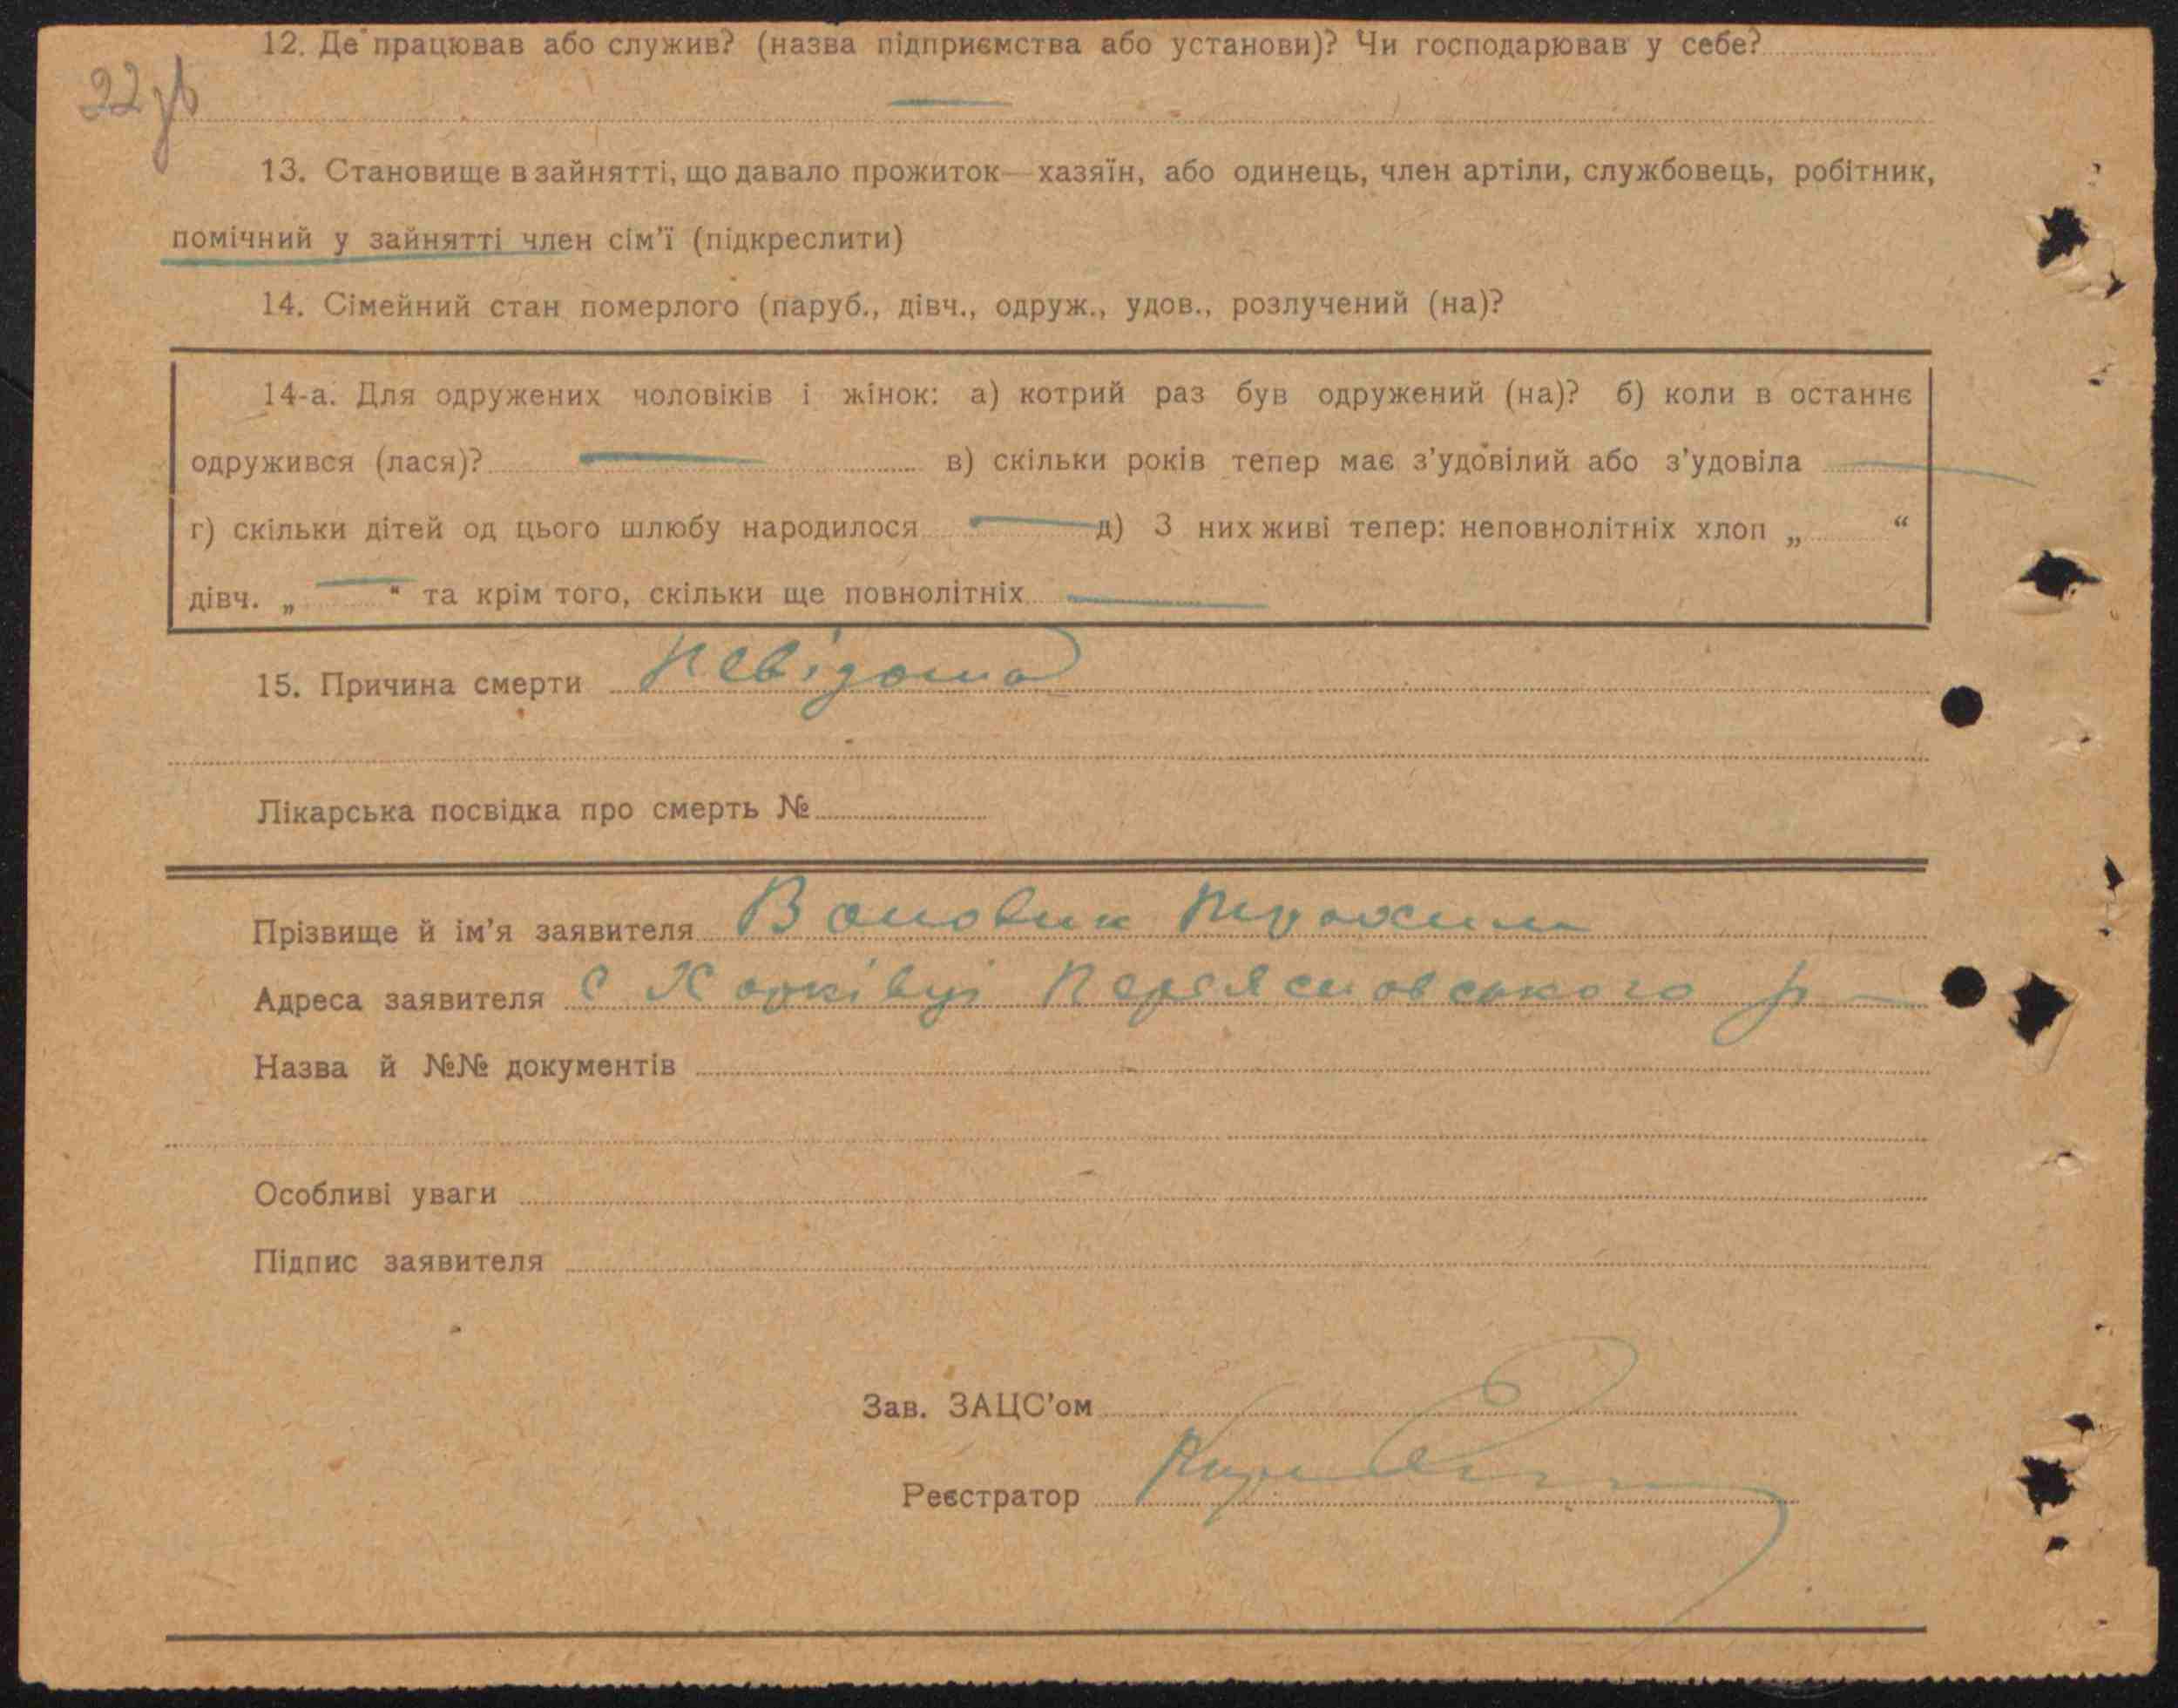 22 зв
12. Де працював або служив? (назва підприємства або установи)? Чи господарював у себе?
13. Становище в зайнятті, що давало прожиток—хазяїн, або одинець, член артіли, службовець, робітник,
помічний у зайнятті член сім'ї (підкреслити)
14. Сімейний стан померлого (паруб., дівч., одруж., удов., розлучений (на)?
14-а. Для одружених чоловіків і жінок: а) котрий раз був одружений (на)? б) коли в останнє
одружився (лася)? в) скільки років тепер має з'удовілий або з'удовіла
г) скільки дітей од цього шлюбу народилося д) З них живі тепер: неповнолітніх хлоп „ “
дівч. „ “ та крім того, скільки ще повнолітніх
15. Причина смерти невідома
Лікарська посвідка про смерть №
Прізвище й ім'я заявителя Вомовик Трохим
Адреса заявителя с Харківці Переяславського р-
Назва й №№ документів
Особливі уваги
Підпис заявителя
Зав. ЗАЦС'ом
Реєстратор